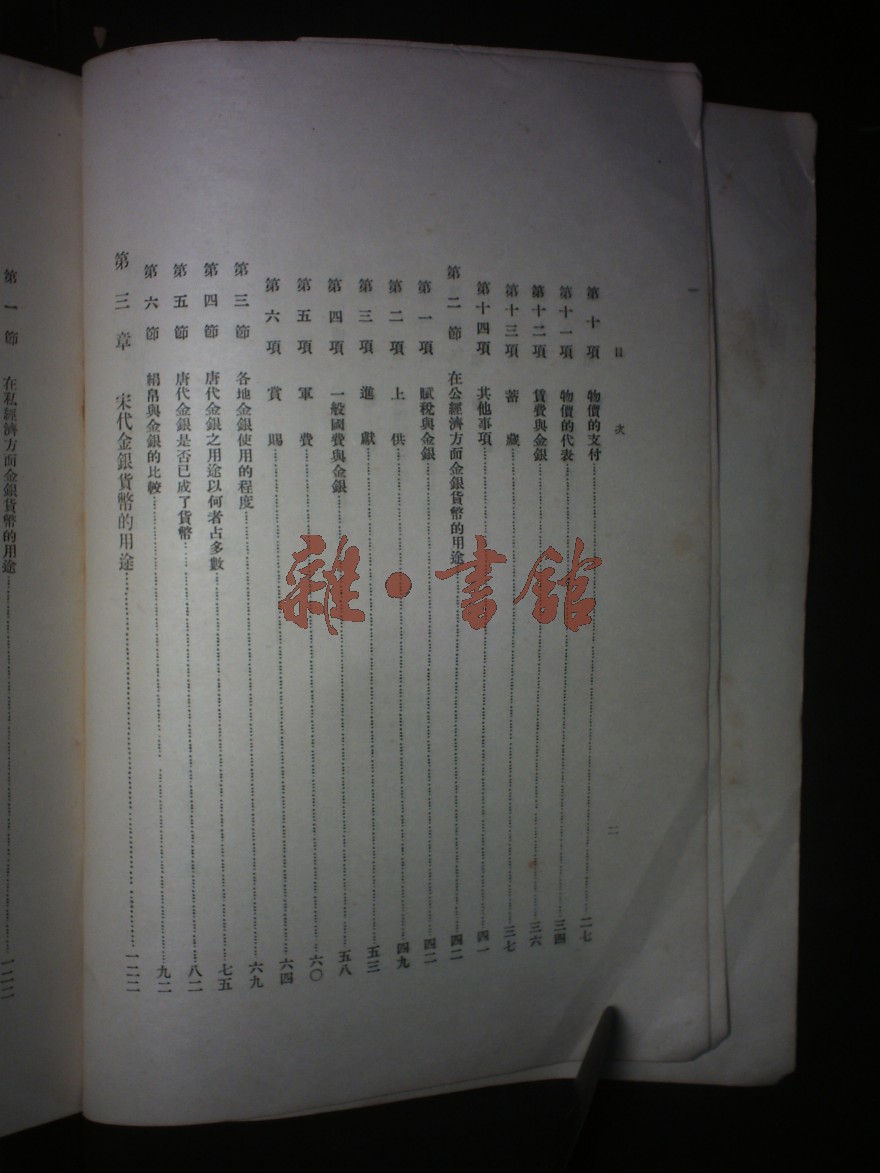 目次
二
第十項 物價的支付……二七
第十一項 物價的代表……三四
第十二項 賃費與金銀……三六
第十三項 蓄藏……三七
第十四項 其他事項……四一
第二節 在公經濟方面金銀貨幣的用途……四二
第一項 賦稅與金銀……四二
第二項 上供……四九
第三項 進獻……五三
第四項 一般國費與金銀……五八
第五項 軍費……六〇
第六項 賞賜……六四
第三節 各地金銀使用的程度……六九
第四節 唐代金銀之用途以何者占多數……七五
第五節 唐代金銀是否已成了貨幣……八二
第六節 絹帛與金銀的比較……九二
第三章 宋代金銀貨幣的用途……一二二
第一節 在私經濟方面金銀貨幣的用途……一二二
雜·書館